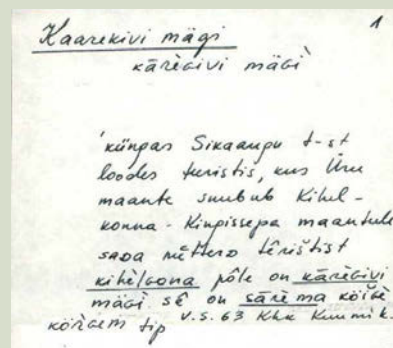 1
Kaarekivi mägi
kāregivi mägi
küngas Sikaangu t-st
loodes teristis, kus Üru
maante suubub Kihel-
konna - Kingissepa maantele
sada mēttero tēristist
kihelgona põle on kāregivi
mägi. sē on sārema kõige
kõrgem tip V.S. 63 Khk Kuumi k.